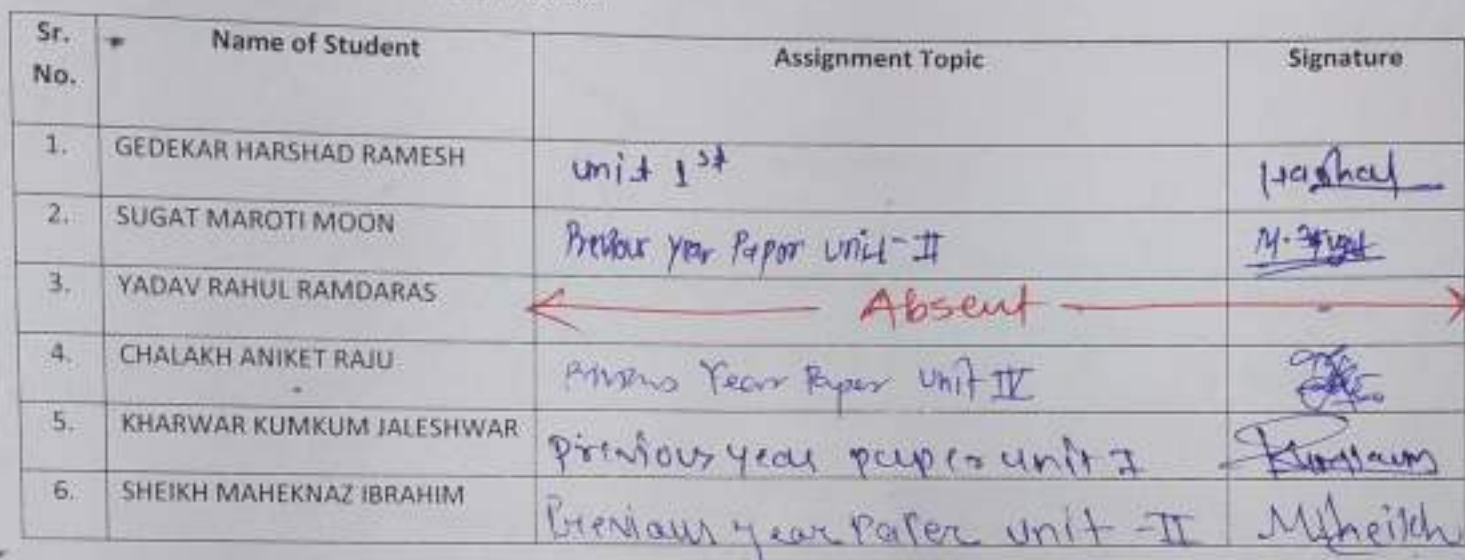 Sr. No. Name of Student Assignment Topic Signature
1. GEDEKAR HARSHAD RAMESH unit 1st Harshad
2. SUGAT MAROTI MOON Previous year Paper Unit-II
3. YADAV RAHUL RAMDARAS Absent
4. CHALAKH ANIKET RAJU Previous Year Paper Unit IV
5. KHARWAR KUMKUM JALESHWAR Previous year paper unit I Kumkum
6. SHEIKH MAHEKNAZ IBRAHIM Previous year Paper unit-II MSheikh